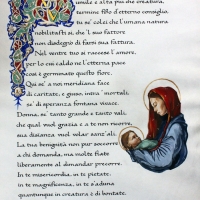 umile e alta più che creatura,
termine fisso d'eterno consiglio,
tu se' colei che l'umana natura
nobilitasti sì, che 'l suo fattore
non disdegnò di farsi sua fattura.
Nel ventre tuo si raccese l'amore,
per lo cui caldo ne l'eterna pace
così è germinato questo fiore.
Qui se' a noi meridiana face
di caritate, e giuso, intra i mortali,
se' di speranza fontana vivace.
Donna, se' tanto grande e tanto vali,
che qual vuol grazia e a te non ricorre,
sua disianza vuol volar sanz'ali.
La tua benignità non pur soccorre
a chi domanda, ma molte fiate
liberamente al dimandar precorre.
In te misericordia, in te pietate,
in te magnificenza, in te s'aduna
quantunque in creatura è di bontate.